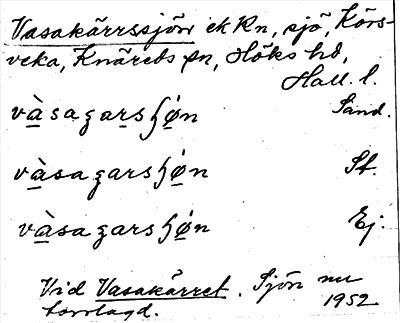 Vasakärrssjön ek Kn, sjö, Körs-
veka, Knäreds sn, Höks hd,
Hall. l.
vàsagarsʃǿn Sand.
vàsagarsʃǿn St.
vàsagarsʃǿn Ej.
Vid Vasakärret. Sjön nu
torrlagd. 1952